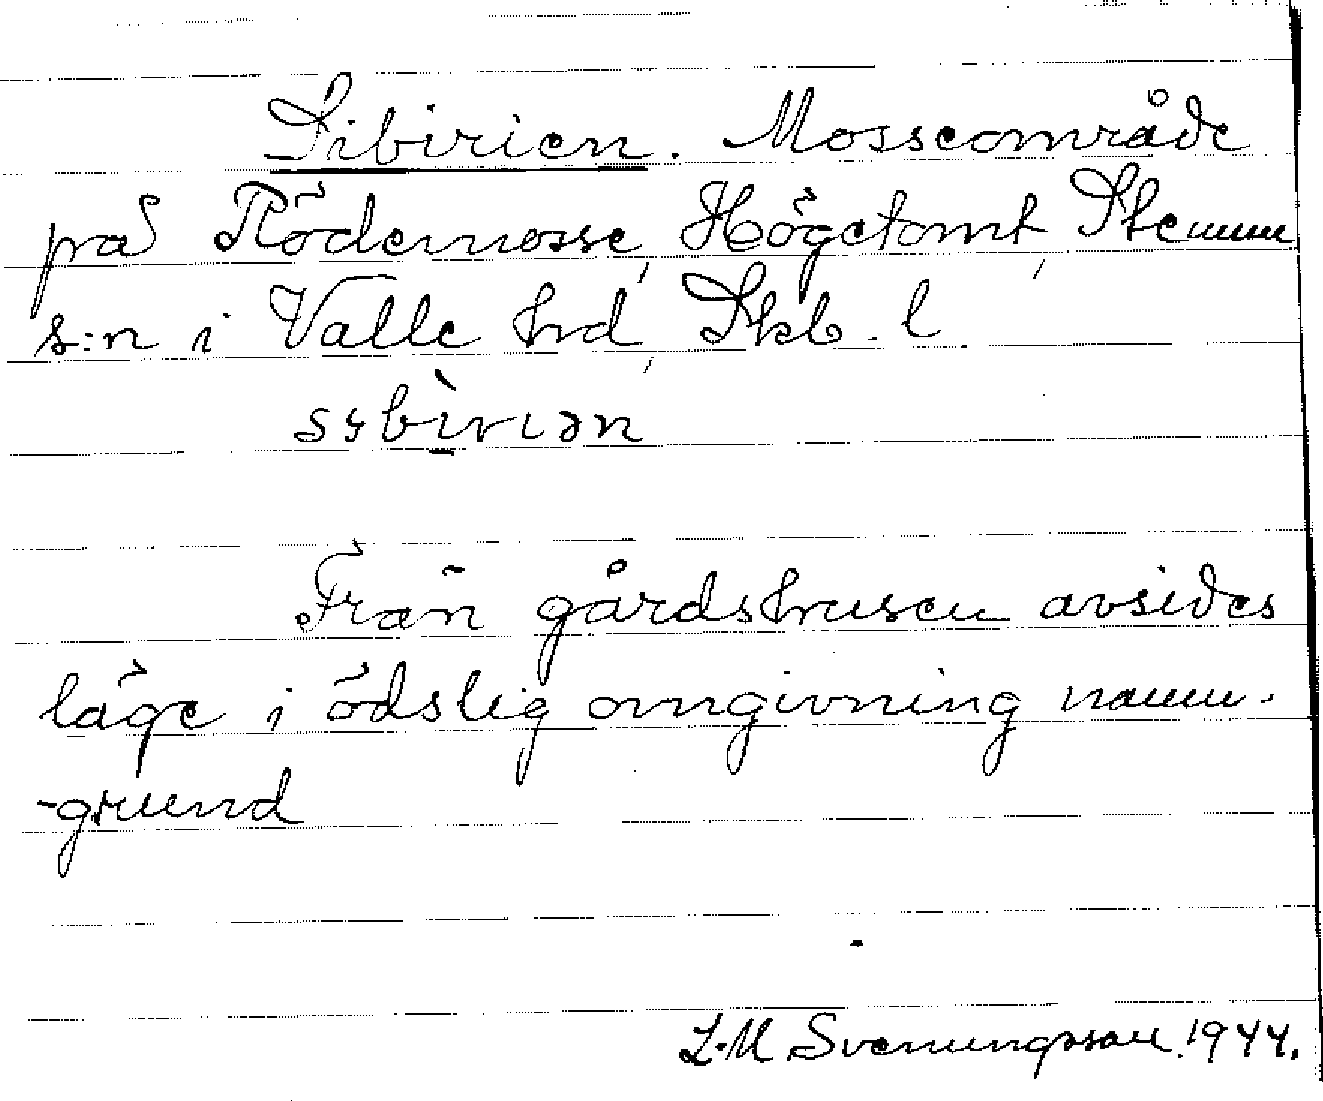 Sibirien. Mosseområde
på Rödemosse, Högetomt, Stenum
s:n i Valle hrd, Skb. l.
sybìriən
Från gårdshusen avsides
läge i ödslig omgivning namn-
-grund
L.M Svenungsson. 1944.